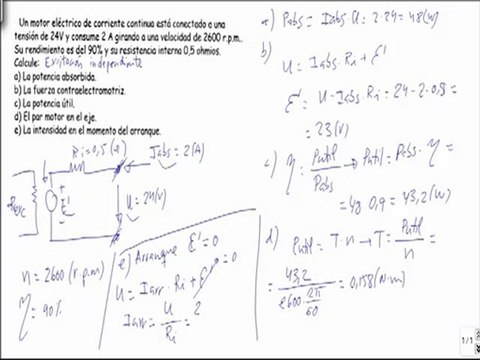 Un motor eléctrico de corriente continua está conectado a una
tensión de 24V y consume 2 A girando a una velocidad de 2600 r.p.m..
Su rendimiento es del 90% y su resistencia interna 0,5 ohmios.
Calcule: Excitación independiente
a) La potencia absorbida.
b) La fuerza contraelectromotriz.
c) La potencia útil.
d) El par motor en el eje.
e) La intensidad en el momento del arranque.
Ri=0,5(Ω)
Iabs=2(A)
Rexc
+
E'
-
U=24(V)
n=2600(r.p.m)
η=90%
e) Arranque E'=0
U=Iarr·Ri+E' =0
Iarr=U/Ri=2
a) Pabs=Iabs·U=2·24=48(W)
b)
U=Iabs·Ri+E'
E'=U-Iabs·Ri=24-2·0,5=
=23(V)
c) η=Putil/Pabs→Putil=Pabs·η=
=48·0,9=43,2(W)
d) Putil=T·n→T=Putil/n=
=43,2/(2600·2π/60)=0,158(N·m)
1/1